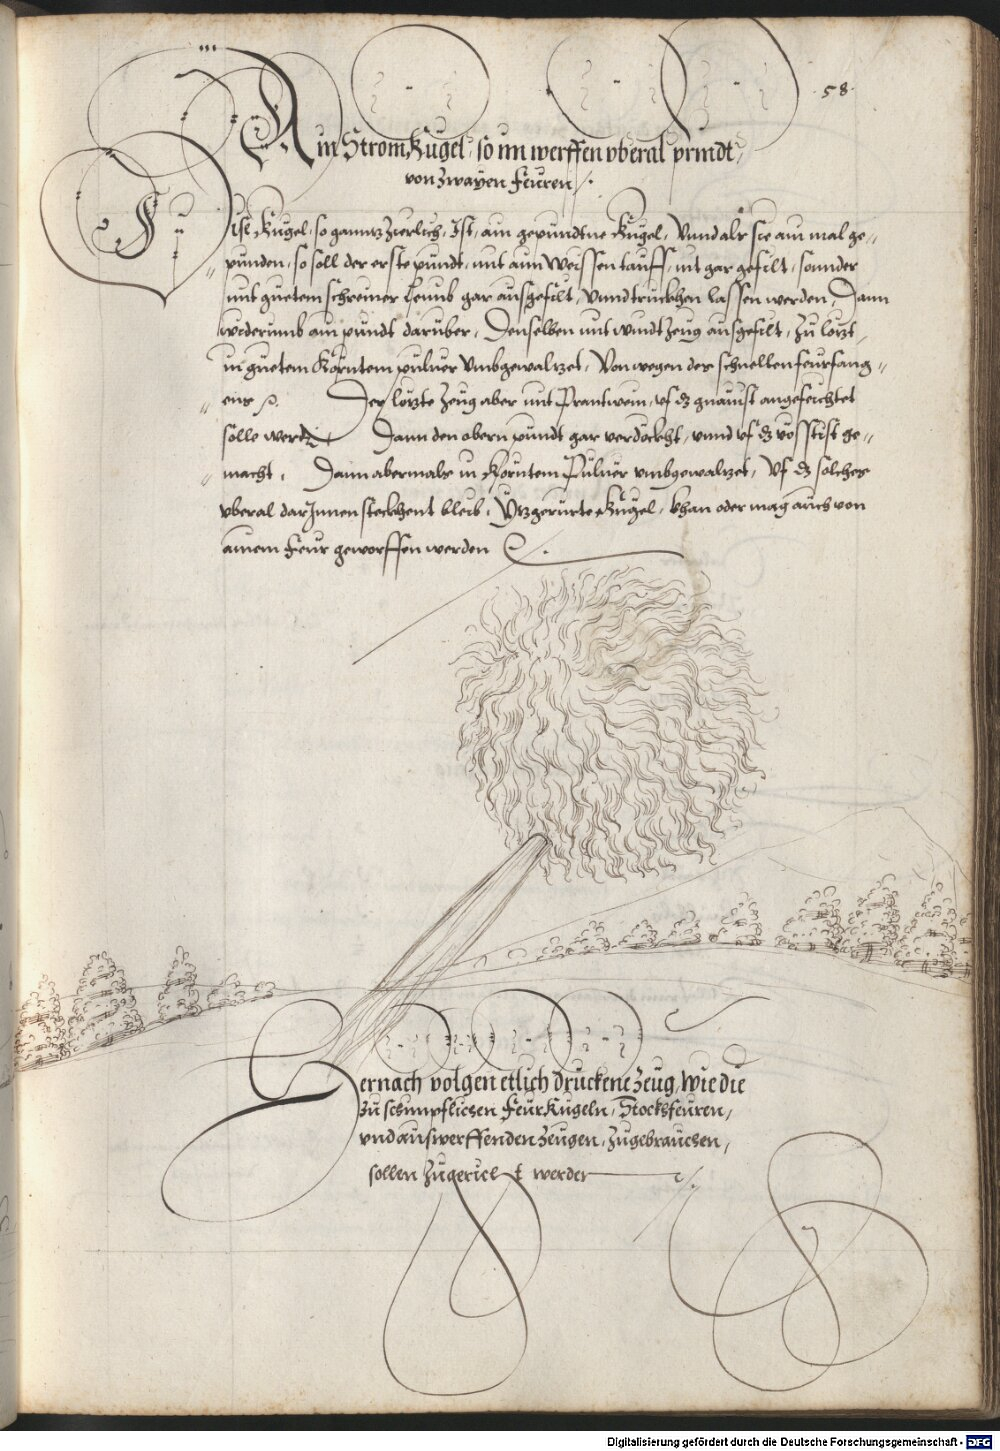 58.
Ain Strom Kugel, so im werffen vberal prindt,
von Zwayen Feuren ⁒.
Dise Kugel, so ganntz Zierlich, Ist, ain gepundtne Kugel, Vnnd alß sie ain mal ge-,,
,, punden, so soll der erste pundt, mit ainn Weissen tauff, nit gar gefilt, sonnder
mit guetem schreiner Leimb gar ausgefilt, vnnd truckhen lassen werden, Dann
widerumb ain pundt darüber, Denselben mit windtzeug ausgefilt, Zu lötzt,
in guetem Körntem puluer vmbgewaltzet, Von wegen der schnellen feurfang-,,
,, ens ⁒. Der lötzte Zeug aber mit Prantwein, vf dz gnauist angefeichtet
solle werdn Dann den obern pundt gar verdöckht, vnnd vf dz vösstist ge-,,
,, macht, Dann abermals in Körntem Puluer vmbgewaltzet, Vf dz solches
vberal darJnnen steckhent bleib, Ytzgerürte Kugel, khan oder mag auch von
ainem Feur geworffen werden
Hernach volgen etlich druckene Zeug, Wie die
Zu schimpflichen FeurKugeln, Stockhfeuren,
vnd auswerffenden Zeugen, Zugebrauchen,
sollen Zugericht werden ⁒.
Digitalisierung gefördert durch die Deutsche Forschungsgemeinschaft - DFG